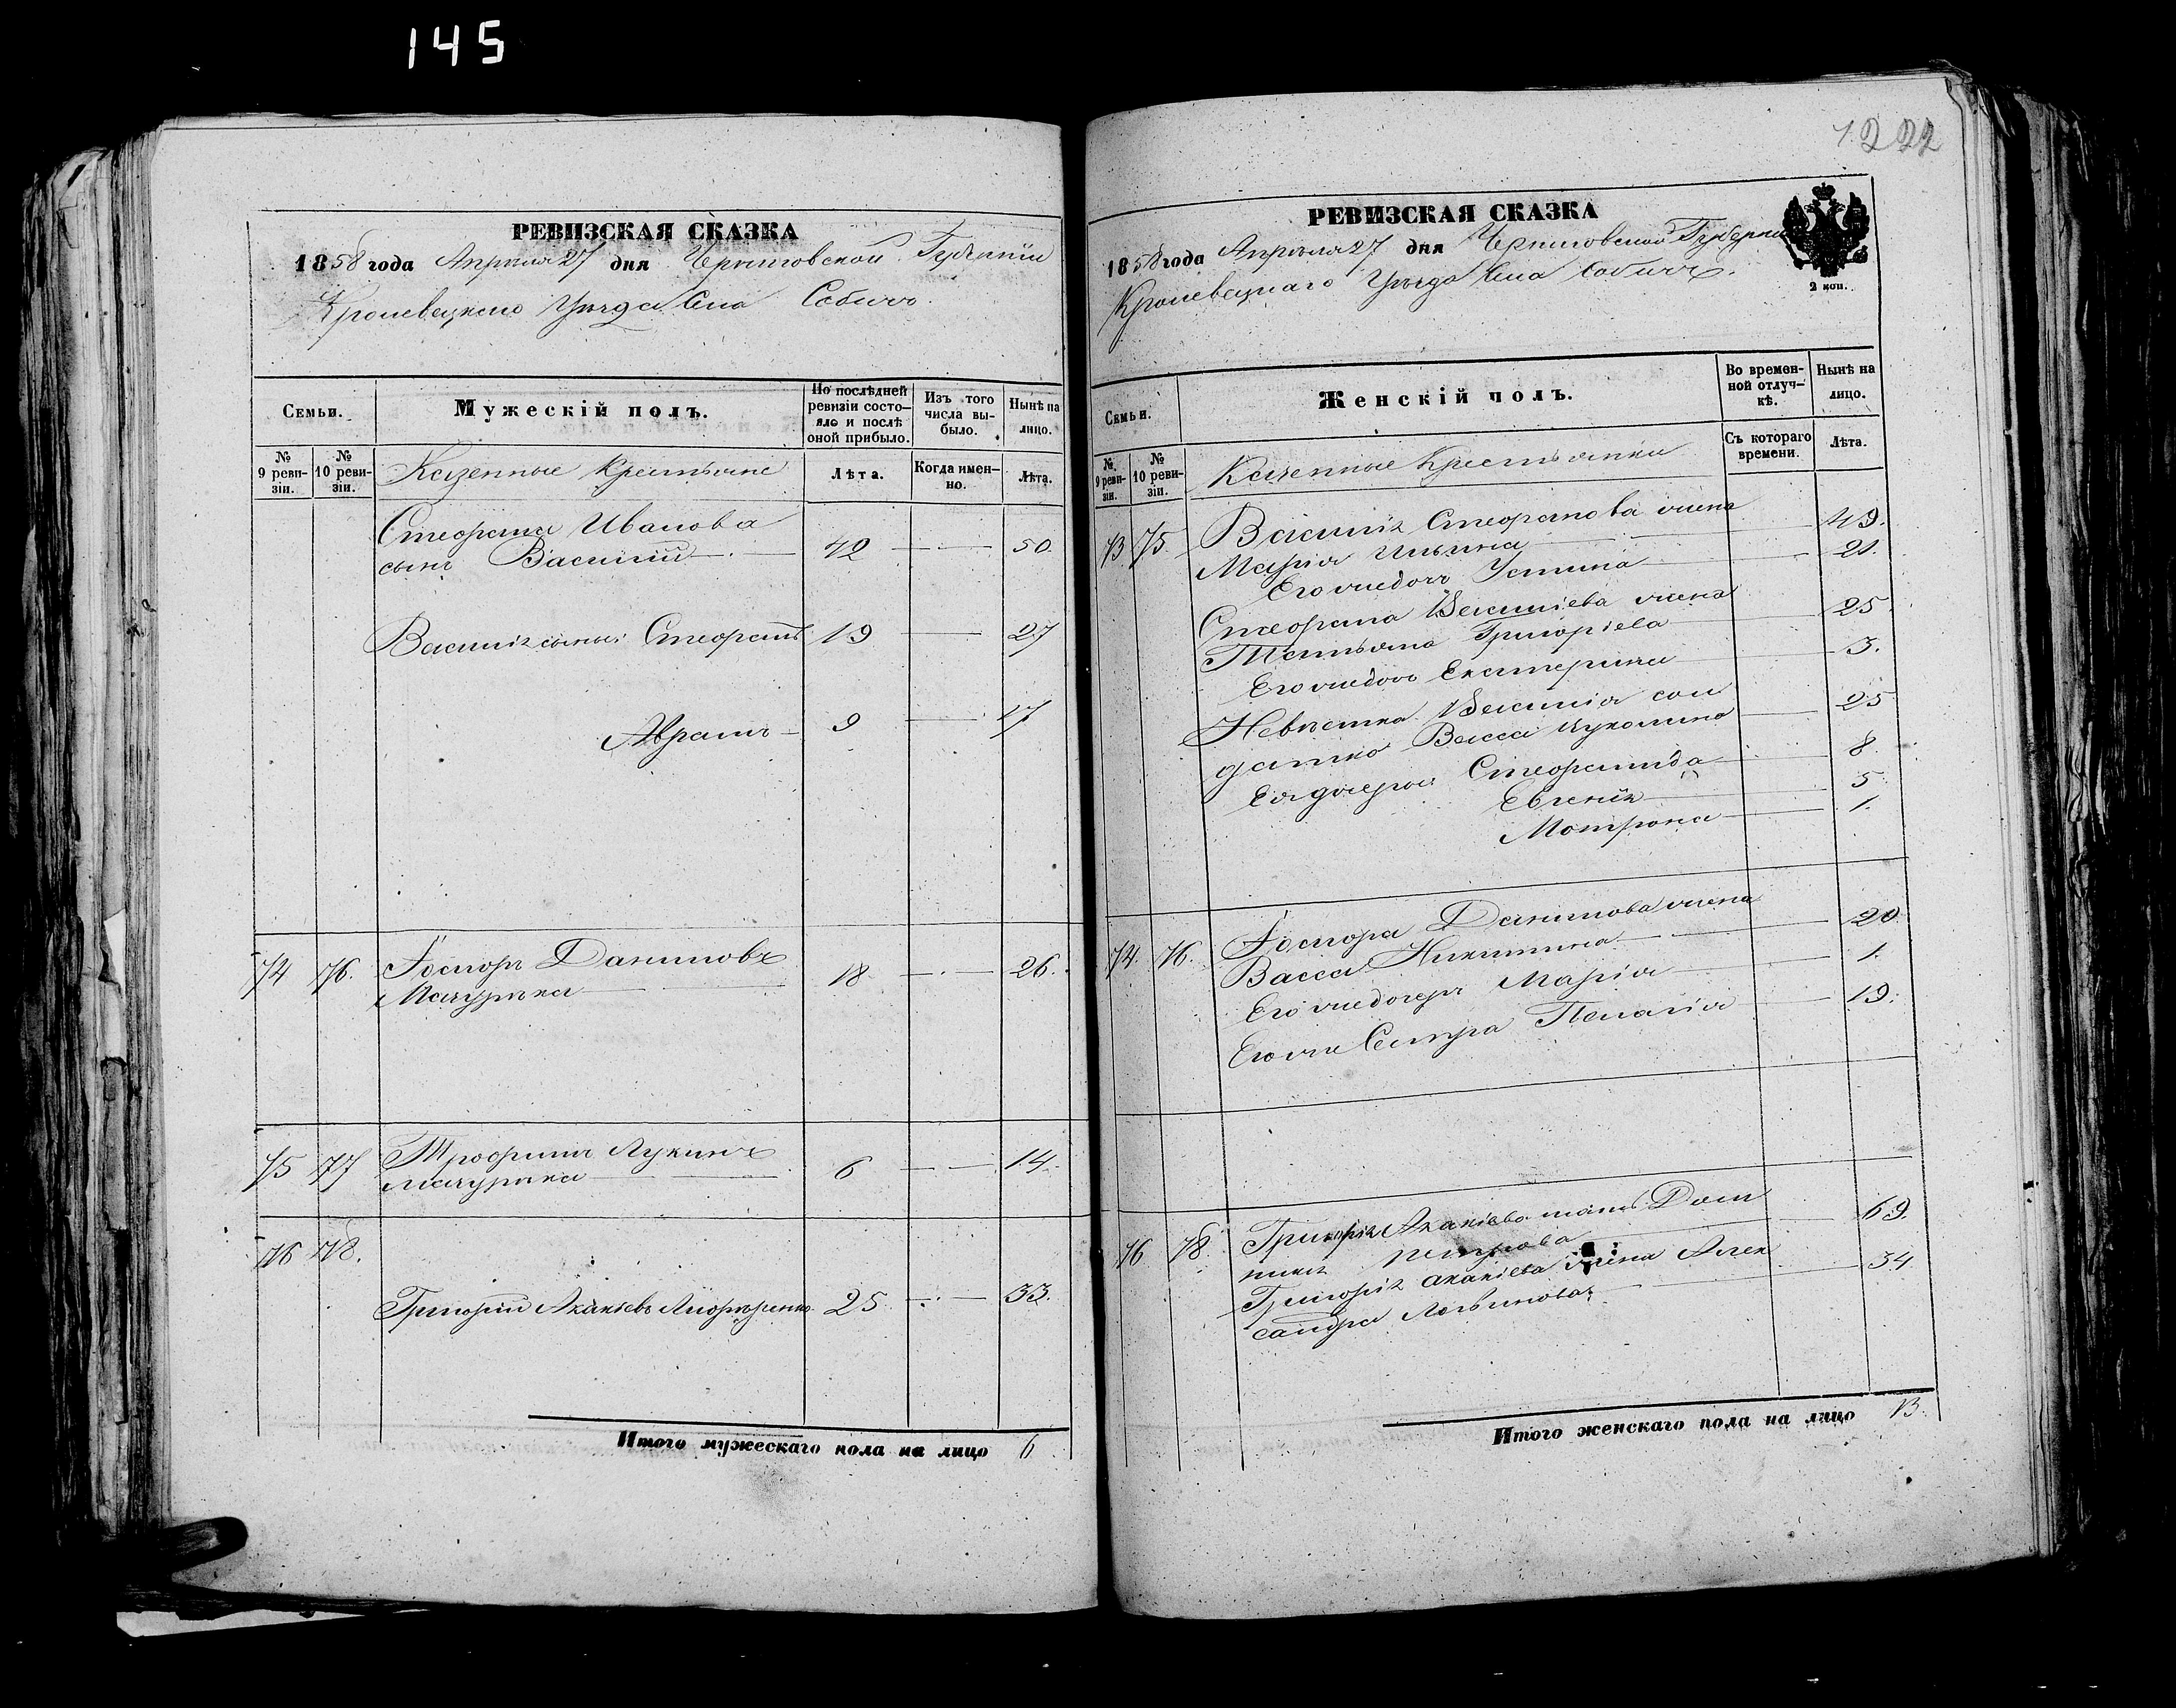 145
1222
РЕВИЗСКАЯ СКАЗКА
1858 года Апреля 27 дня Черниговской Губернии
Кролевецкого Уезда Села Собичь.
Семьи.
Мужескій полъ.
По послѣдней ревизіи состояло и послѣ оной прибыло.
Изъ того числа выбыло.
Нынѣ на лицо.
№ 9 ревизіи.
№ 10 ревизіи.
Казенные Крестьяне
Лѣта.
Когда именно.
Лѣта.
Стефана Иванова
сынъ Василій 42 50.
Василія сыны: Стефанъ 19 27
Аврамъ 9 17
74 76. Ѳедоръ Даниловъ
18 26.
75 77 Трофимъ Лукинъ
6 14.
76 78.
Григорій Акакіевъ 25 33.
Итого мужескаго пола на лицо 6
РЕВИЗСКАЯ СКАЗКА
1858 года Апрѣля 27 дня Черниговской Губерніи
Кролевецкаго Уѣзда Села Собичь.
2 коп.
Семьи.
Женскій полъ.
Во временной отлучкѣ.
Нынѣ на лицо.
№ 9 ревизіи.
№ 10 ревизіи.
Казенные Крестьянки
Съ котораго времени.
Лѣта.
73 75. Василія Стефанова жена
Марія Ильина 49.
Его же дочь Устина 21.
Стефана Василіева жена
Татьяна Григоріева 25
Его же дочь Екатерина 3.
Невѣстка Василія сол
датка Васса 25
Ея дочеры: Стефанида 8
Евгенія 5
Мотрона 1.
74. 76. Ѳедора Данилова жена
Васса Никитина 20
Его же дочерь Марія 1.
Его же Сестра Пелагія 19.
76 78. Григорія Акакіева мать Дом
никія Петрова 69.
Григорія Акакіева жена Алек
сандра Логвинова 34
Итого женскаго пола на лицо 13.